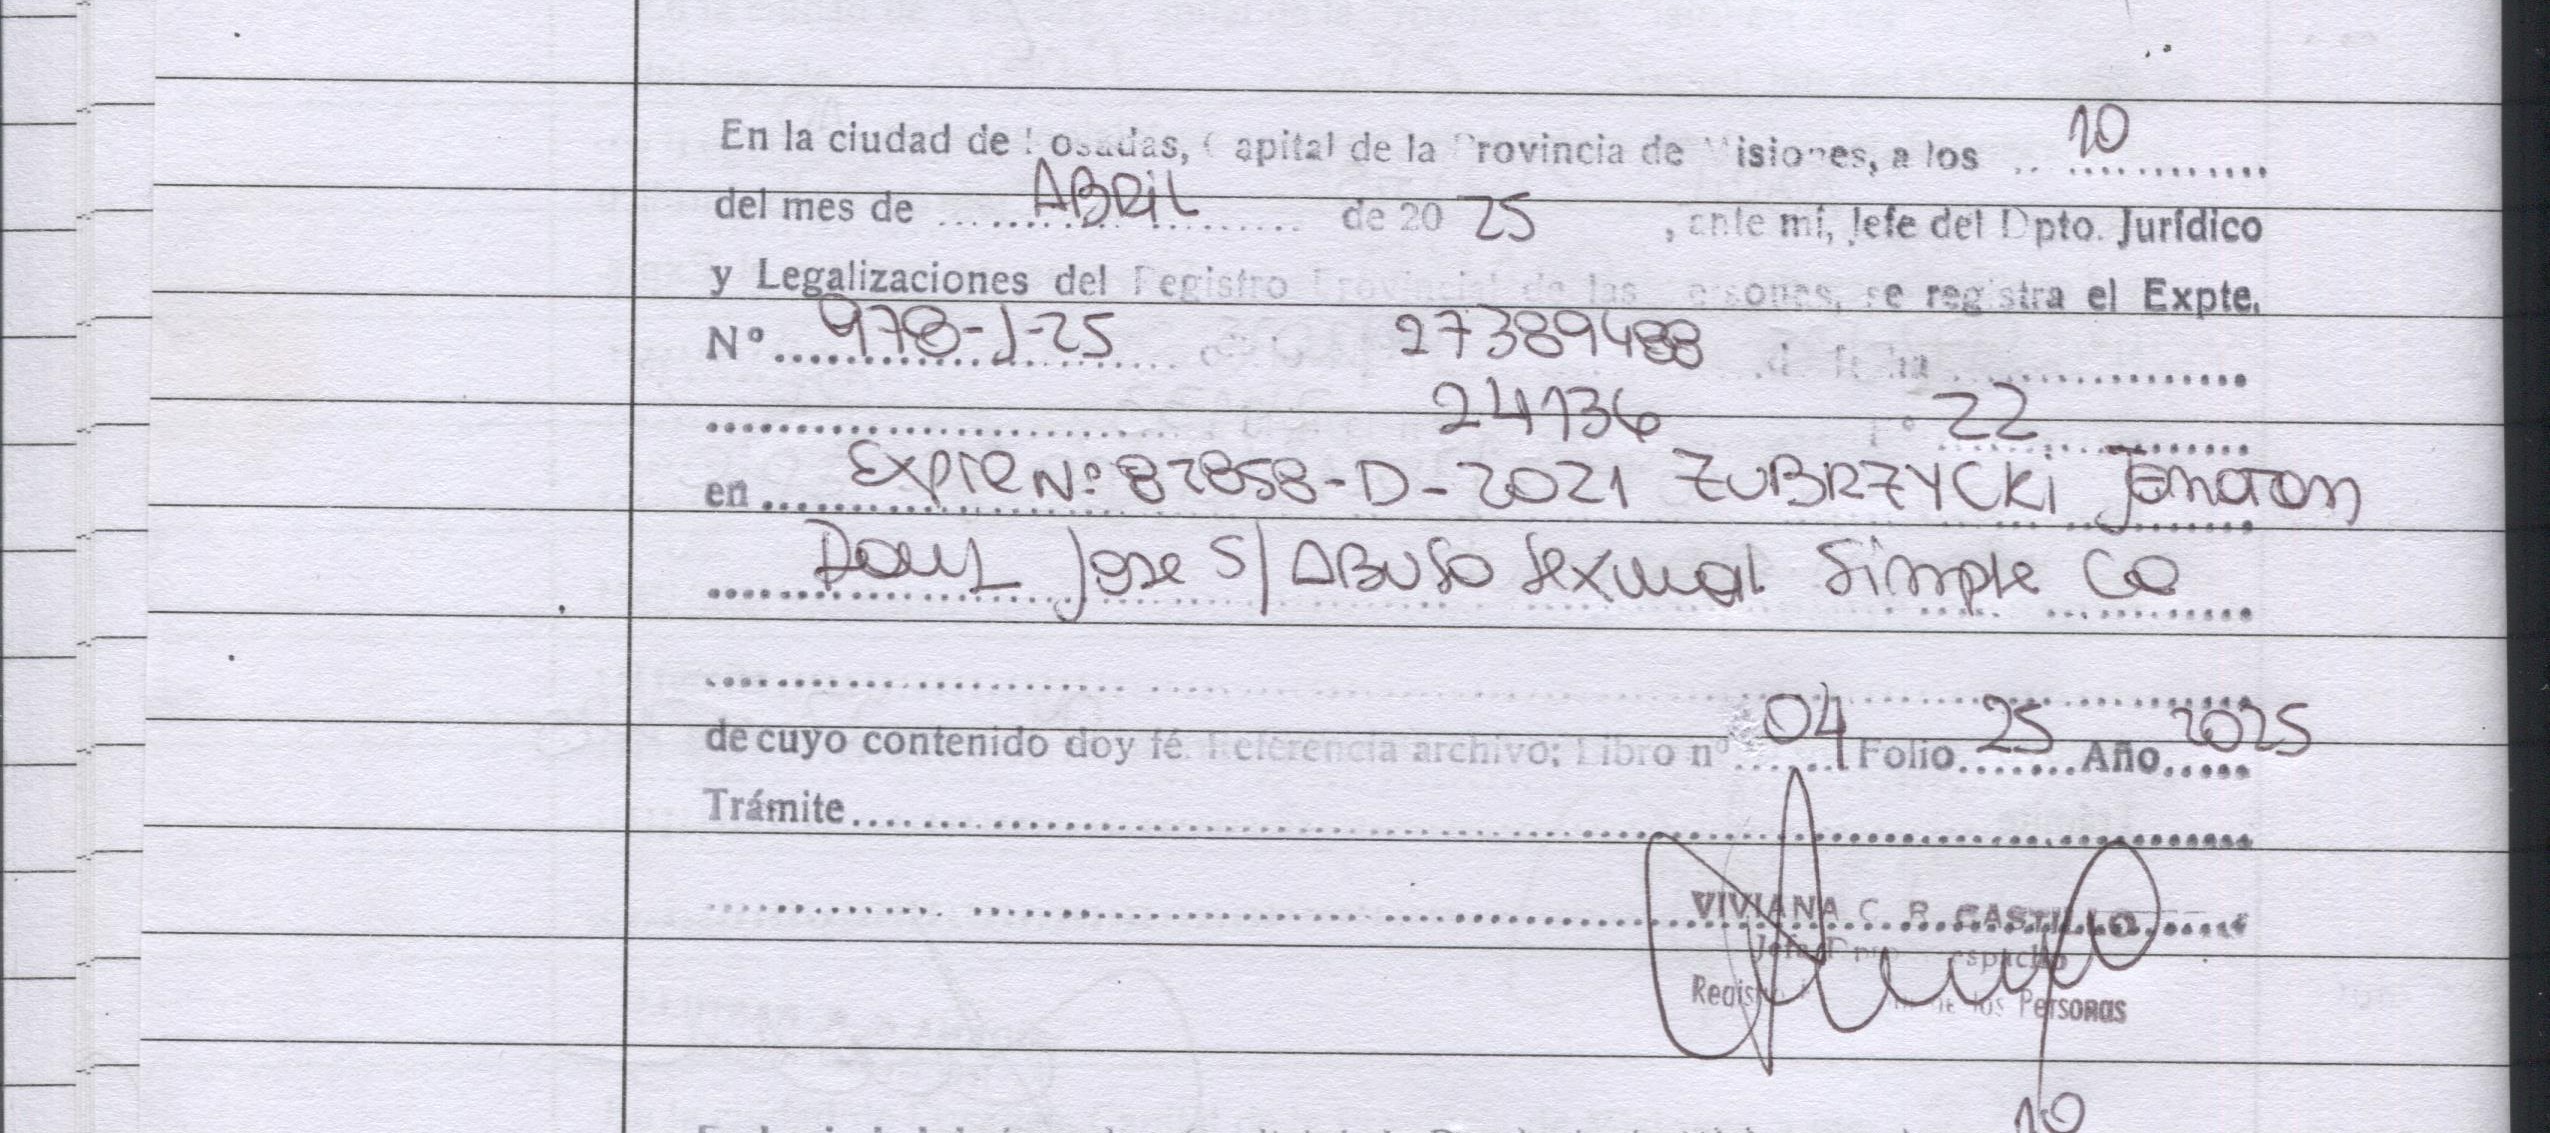 En la ciudad de Posadas, Capital de la Provincia de Misiones, a los .. 10 ............
del mes de ...... ABRIL .......... de 20 25 , ante mí, Jefe del Dpto. Jurídico
y Legalizaciones del Registro Provincial de las Personas, se registra el Expte.
Nº ... 978-J-25 ...... 27389488 ................
........................ 24136 ...... 22 ..........
en .... Expte Nº 82858-D-2021 ZUBRZYCKi Jonaton
Jose S/ ABUSO Sexual Simple
........................................
de cuyo contenido doy fé. Referencia archivo; Libro nº 04 Folio 25 Año 2025
Trámite ........................................
VIVIANA C. R. CASTILLO
Registro de las Personas
10